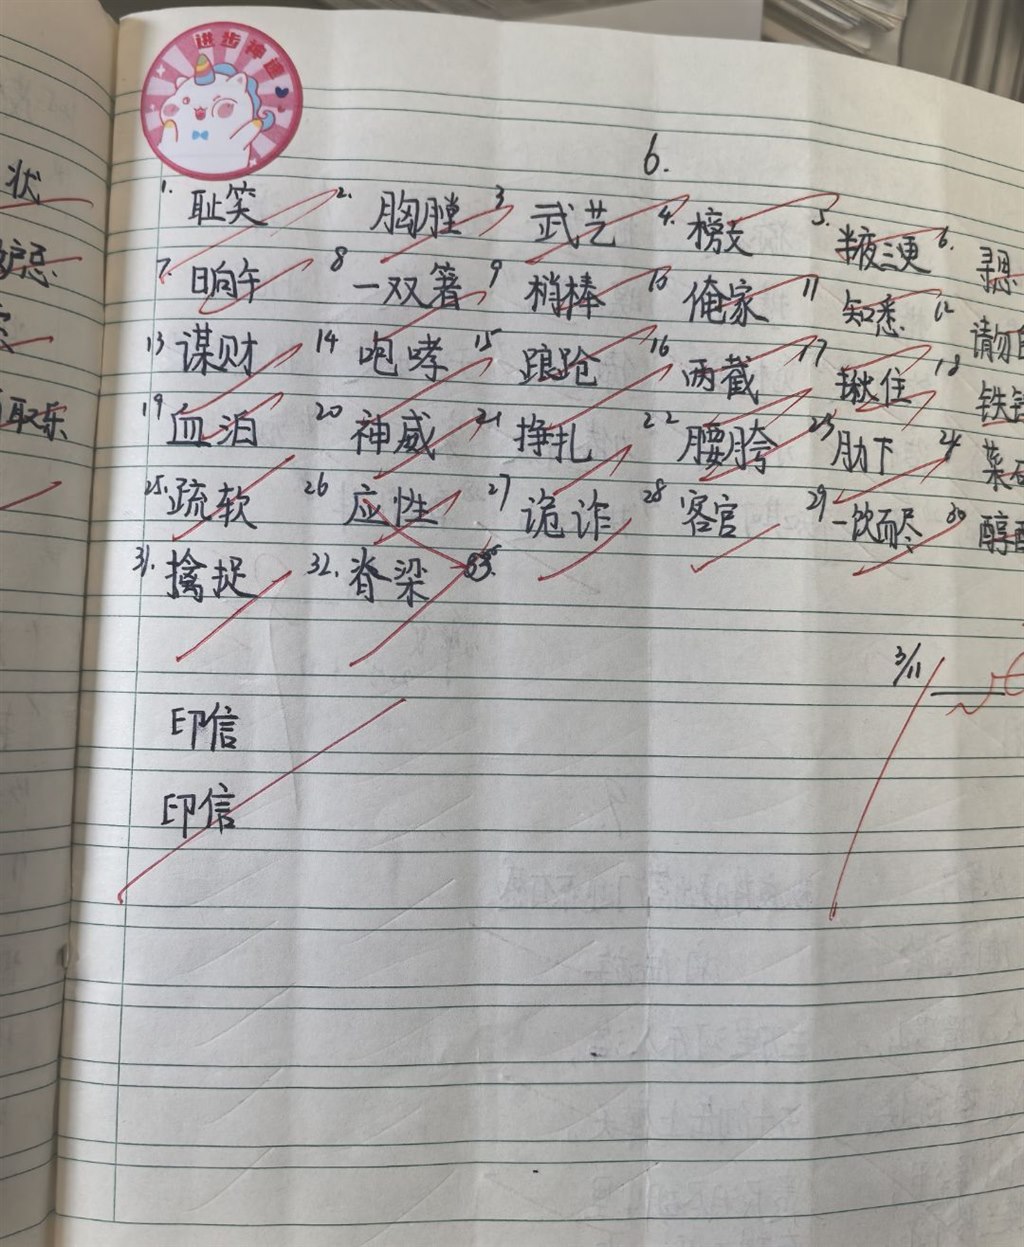 进步神速
6.
状
1. 耻笑 2. 胸膛 3 武艺 4. 榜文 5. 半夜三更 6. 寻思
妒忌
7. 日向午 8 一双箸 9 梢棒 10 俺家 11 知悉 12 请勿自
13 谋财 14 咆哮 15 踉跄 16 两截 17 揪住 18 铁锤
取乐
19 血泊 20 神威 21 挣扎 22 腰胯 23 肋下 24 菜
25. 疏软 26 应性 27 诡诈 28 客官 29 一饮而尽 30 醇
31. 擒捉 32. 脊梁 33.
3/11
印信
印信